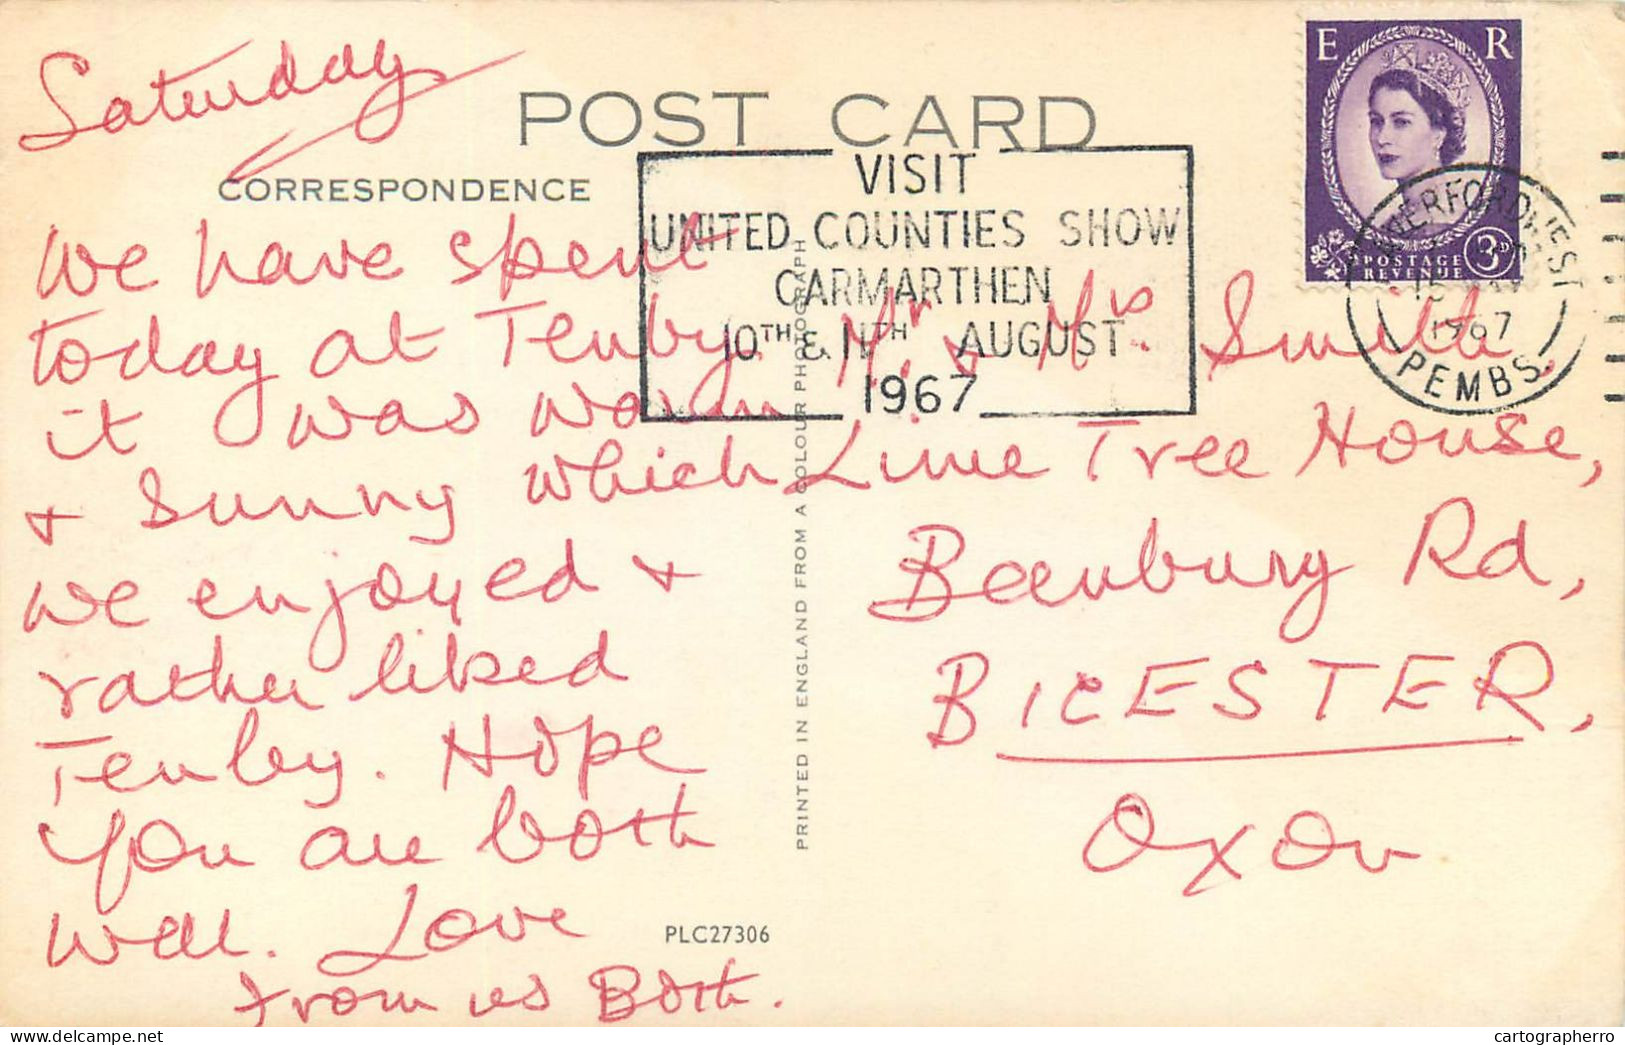 Saturday
POST CARD
CORRESPONDENCE
We have spent
today at Tenby.
it was warm
+ Sunny which
we enjoyed +
rather liked
Tenby. Hope
you are both
well. Love
from us Both.
PLC27306
PRINTED IN ENGLAND FROM A COLOUR PHOTOGRAPH
VISIT
UNITED COUNTIES SHOW
CARMARTHEN
10TH & 11TH AUGUST
1967
E R
POSTAGE
REVENUE
3D
HAVERFORDWEST
15
1967
PEMBS.
Mr & Mrs. Smith,
Lime Tree House,
Rd,
BICESTER,
Oxon
cartographerro